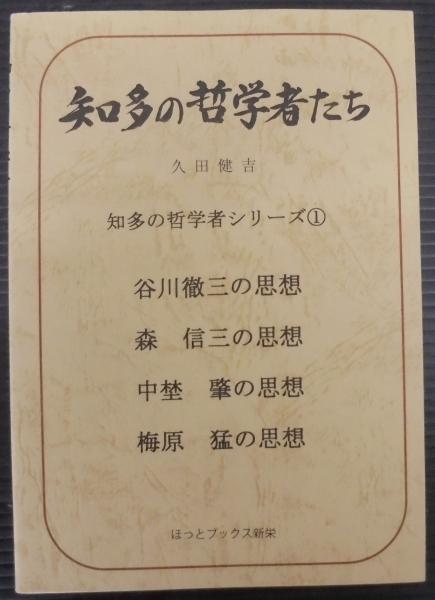 知多の哲学者たち
久田健吉
知多の哲学者シリーズ①
谷川徹三の思想
森　信三の思想
中埜　肇の思想
梅原　猛の思想
ほっとブックス新栄